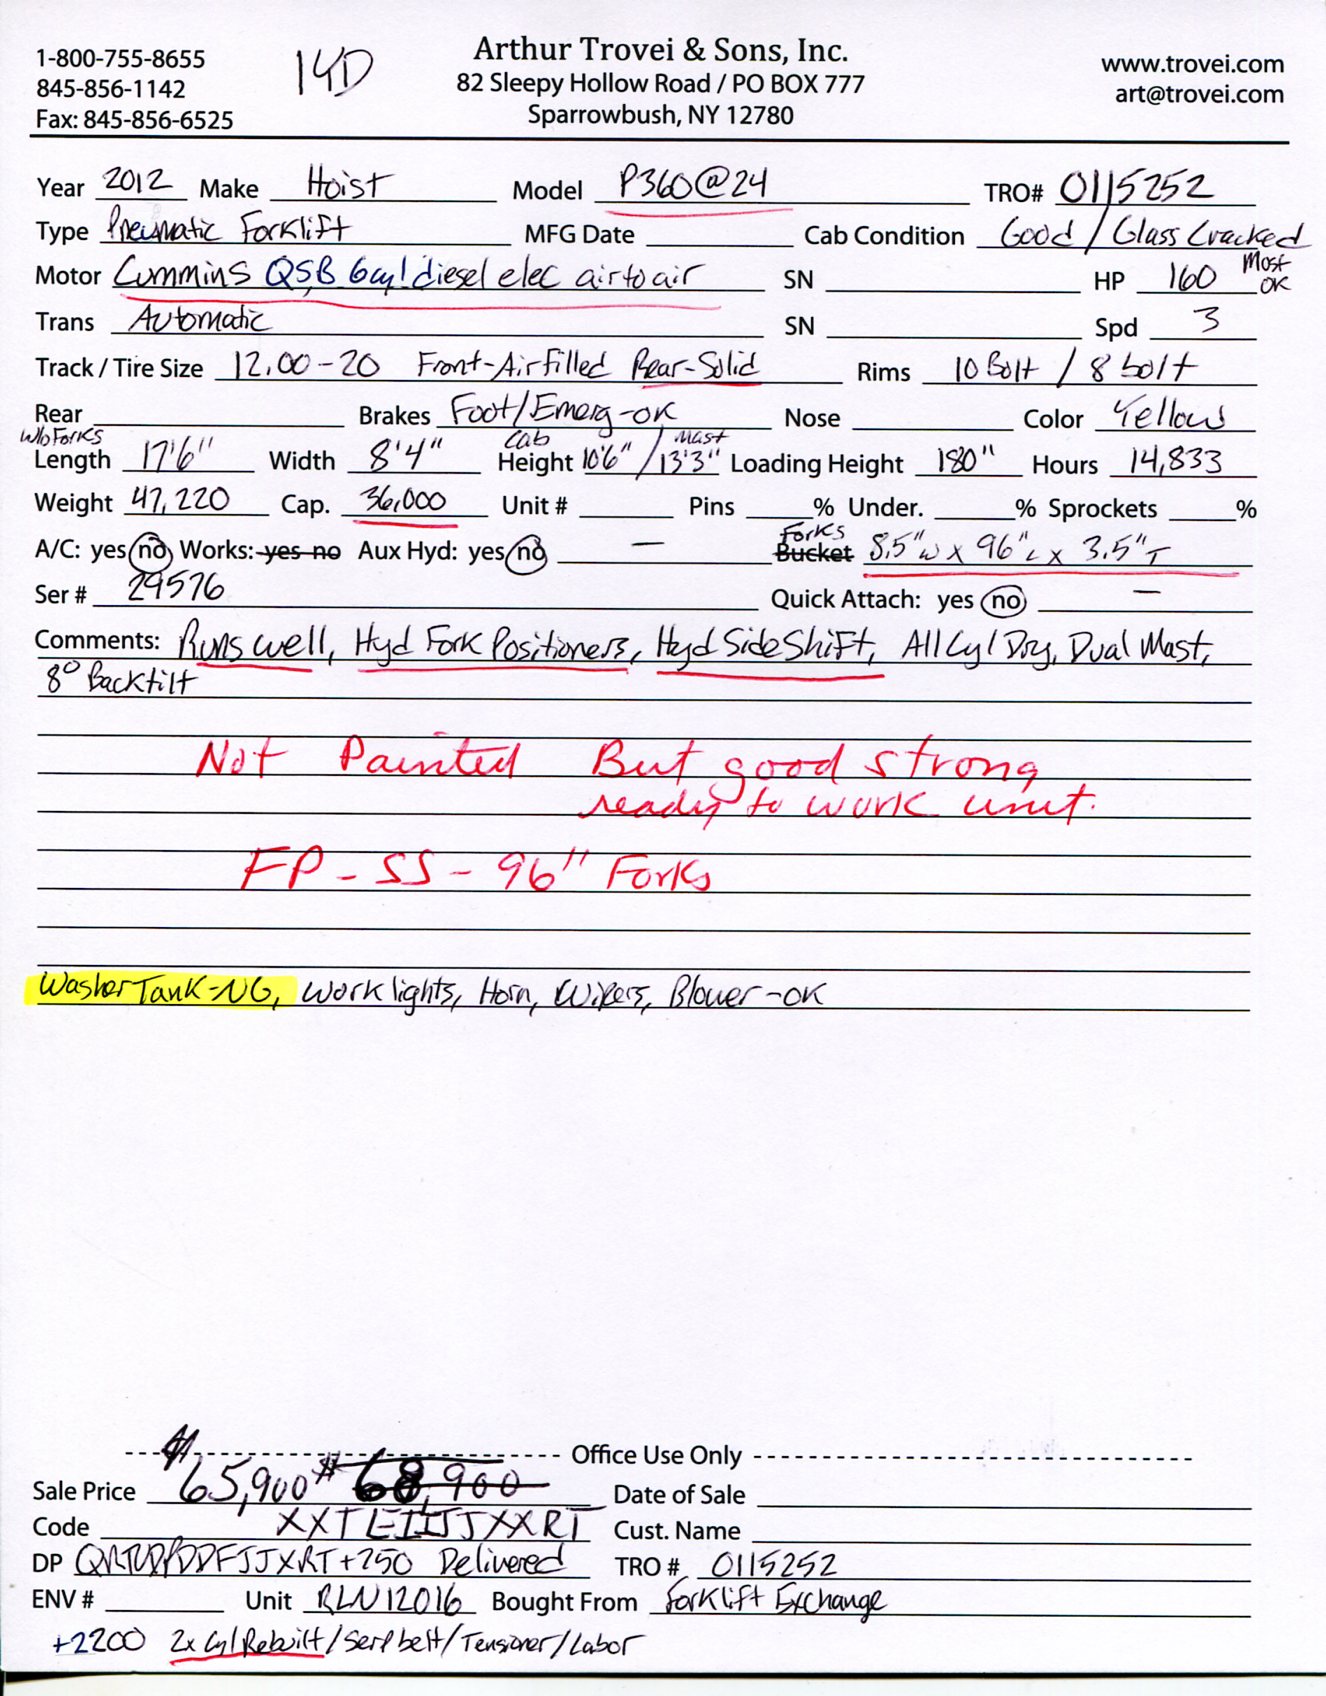 1-800-755-8655
845-856-1142
Fax: 845-856-6525
14D
Arthur Trovei & Sons, Inc.
82 Sleepy Hollow Road / PO BOX 777
Sparrowbush, NY 12780
www.trovei.com
art@trovei.com
Year 2012 Make Hoist Model P360@24 TRO# 0115252
Type Pneumatic Forklift MFG Date Cab Condition Good / Glass Cracked
Motor Cummins QSB 6cyl diesel elec air to air SN HP 160 Most OK
Trans Automatic SN Spd 3
Track / Tire Size 12.00-20 Front-Airfilled Rear-Solid Rims 10 Bolt / 8 bolt
Rear Brakes Foot/Emerg-OK Nose Color Yellow
W/o Forks Cab Mast
Length 17'6" Width 8'4" Height 10'6" / 13'3" Loading Height 180" Hours 14,833
Weight 47,220 Cap. 36,000 Unit # Pins % Under. % Sprockets %
A/C: yes no Works: yes no Aux Hyd: yes no — Bucket Forks 8.5"W x 96"L x 3.5"T
Ser # 29576 Quick Attach: yes no —
Comments: Runs well, Hyd Fork Positioners, Hyd SideShift, All Cyl Dry, Dual Mast,
8° Backtilt
Not Painted But good strong
ready to work unit.
FP - SS - 96" Forks
Washer Tank-NG, Work lights, Horn, Wipers, Blower-OK
Office Use Only
Sale Price $65,900 $68,900 Date of Sale
Code Cust. Name
DP +250 Delivered TRO # 0115252
ENV # Unit RLN12016 Bought From Forklift Exchange
+2200 2x Cyl Rebuilt/Serp belt/Tensioner/Labor